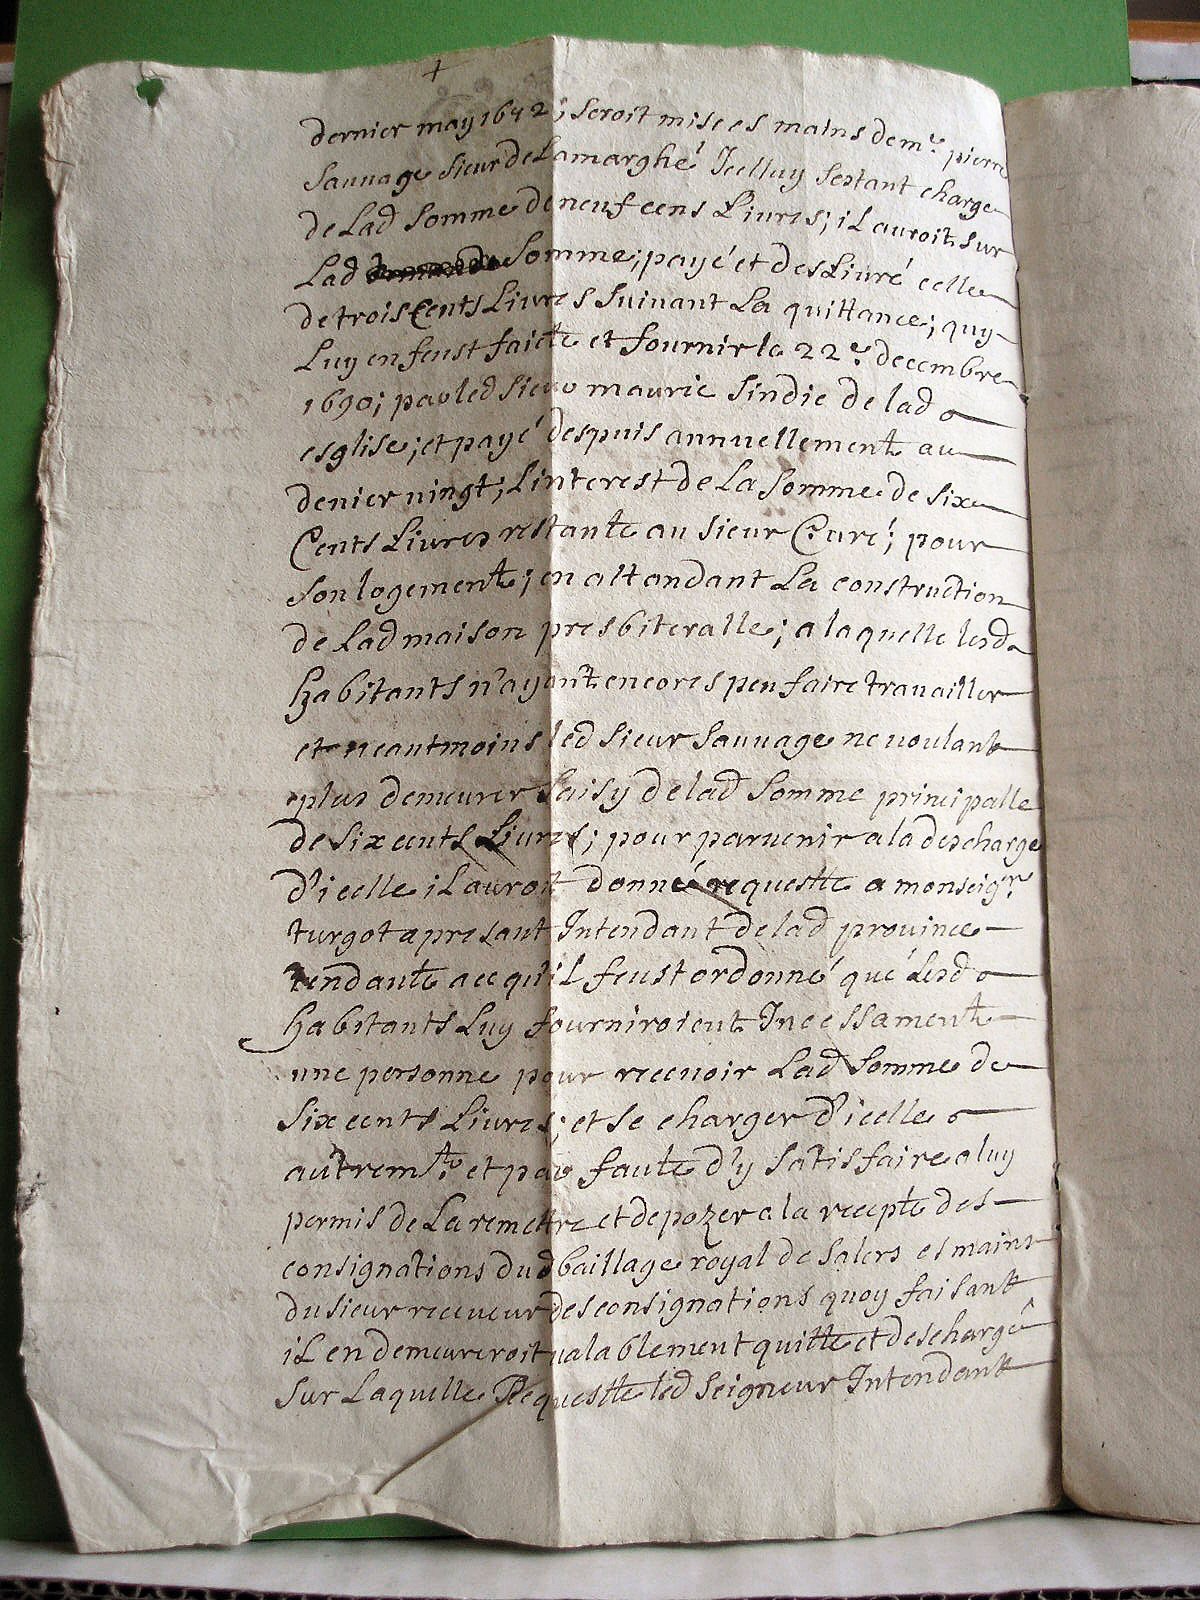 dernier may 1642; seroit mise es mains de m.e pierre
Sauvage sieur de Lamarghé Icelluy sestant charge
de Lad somme de neuf cens Livres; il auroit sur
Lad somme; payé et deslivré celle
de trois Cents Livres suivant La quittance; quy
Luy en feust faicte et fournir le 22.e decembre
1690; par led sieur mauric sindic de lad
esglise; et payé despuis annuellement au
denier vingt; L'interest de La somme de six
Cents Livres restante au sieur Curé; pour
son logement; en attandant La construction
de Lad maison presbiteralle; a laquelle lesd
habitants n'ayant encores peu faire travailler
et neantmoins led sieur Sauvage ne voulant
plus demeurer saisy de lad somme principalle
de six cents Livres; pour parvenir a la descharge
d'icelle il auroit donné requeste a monseig.r
turgot apresant Intendant de lad province
tendante a ce qu'il feust ordonné qué Lesd
habitants Luy fourniroient Incessament
une personne pour recevoir Lad somme de
six cents Livres; et se charger d'icelle
autrem.t et par faulte d'y satisfaire a luy
permis de La remettre et depozer a la recepte des
consignations dud baillage royal de Salers es mains
du sieur receveur des consignations quoy faisant
il en demeureroit valablement quitte et deschargé
Sur Laquelle Requeste led seigneur Intendant